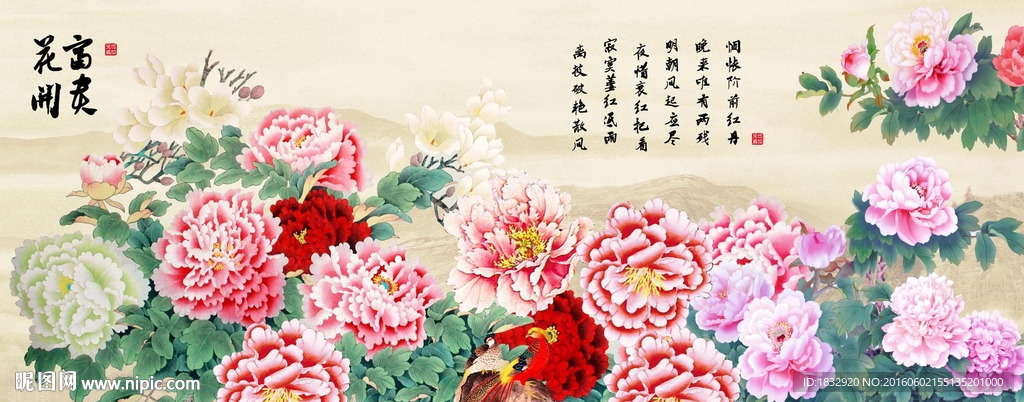 富贵
花開
惆怅阶前红丹
晚来唯有两残
明朝风起应尽
夜惜衰红把看
寂寞萎红低雨
离披破艳散风
昵图网 www.nipic.com
ID:1832920 NO:20160602155135201000